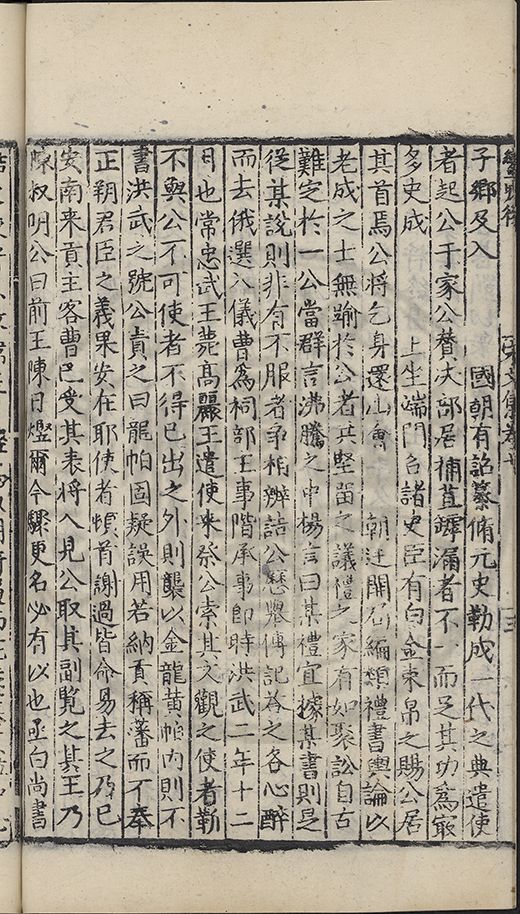 子鄉及入　國朝有詔纂脩元史勒成一代之典遣使
者起公于家公贊決部居補苴罅漏者不一而足其功為最
多史成　上坐端門召諸史臣有白金束帛之賜公居
其首焉公將乞身還山會　朝廷開局編類禮書輿論以
老成之士無踰於公者其堅留之議禮之家有如聚訟自古
難定於一公當群言沸騰之中揚言曰某禮宜據某書則是
從某說則非有不服者爭相辨詰公歷舉傳記答之各心醉
而去俄選入儀曹為祠部主事階承事郎時洪武二年十二
月也常忠武王薨高麗王遣使來祭公索其文觀之使者靳
不與公不可使者不得已出之外則襲以金龍黃帕內則不
書洪武之號公責之曰龍帕固疑誤用若納貢稱藩而不奉
正朔君臣之義果安在耶使者頓首謝過皆命易去之乃已
安南來貢主客曹已受其表將入見公取其副覽之其王乃
陳叔明公曰前王陳日熞爾今驟更名必有以也亟白尚書